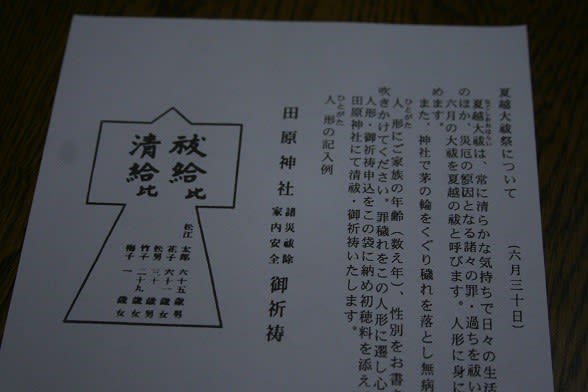 夏越大祓祭について　（六月三十日）
夏越大祓は、常に清らかな気持ちで日々の生活
のほか、災厄の原因となる諸々の罪・過ちを祓い
六月の大祓を夏越の祓と呼びます。人形に身
めます。
また、神社で茅の輪をくぐり穢れを落とし無病
人形にご家族の年齢（数え年）、性別をお書
吹きかけてください。罪穢れをこの人形に遷し心
人形・御祈祷申込をこの袋に納め初穂料を添え
田原神社にて清祓・御祈祷いたします。
人形の記入例
田原神社　諸災祓除　家内安全　御祈祷
祓給比
清給比
松江　太郎　六十五歳　男
花子　六十一歳　女
松男　三十歳　男
竹子　二十九歳　女
梅子　一歳　女